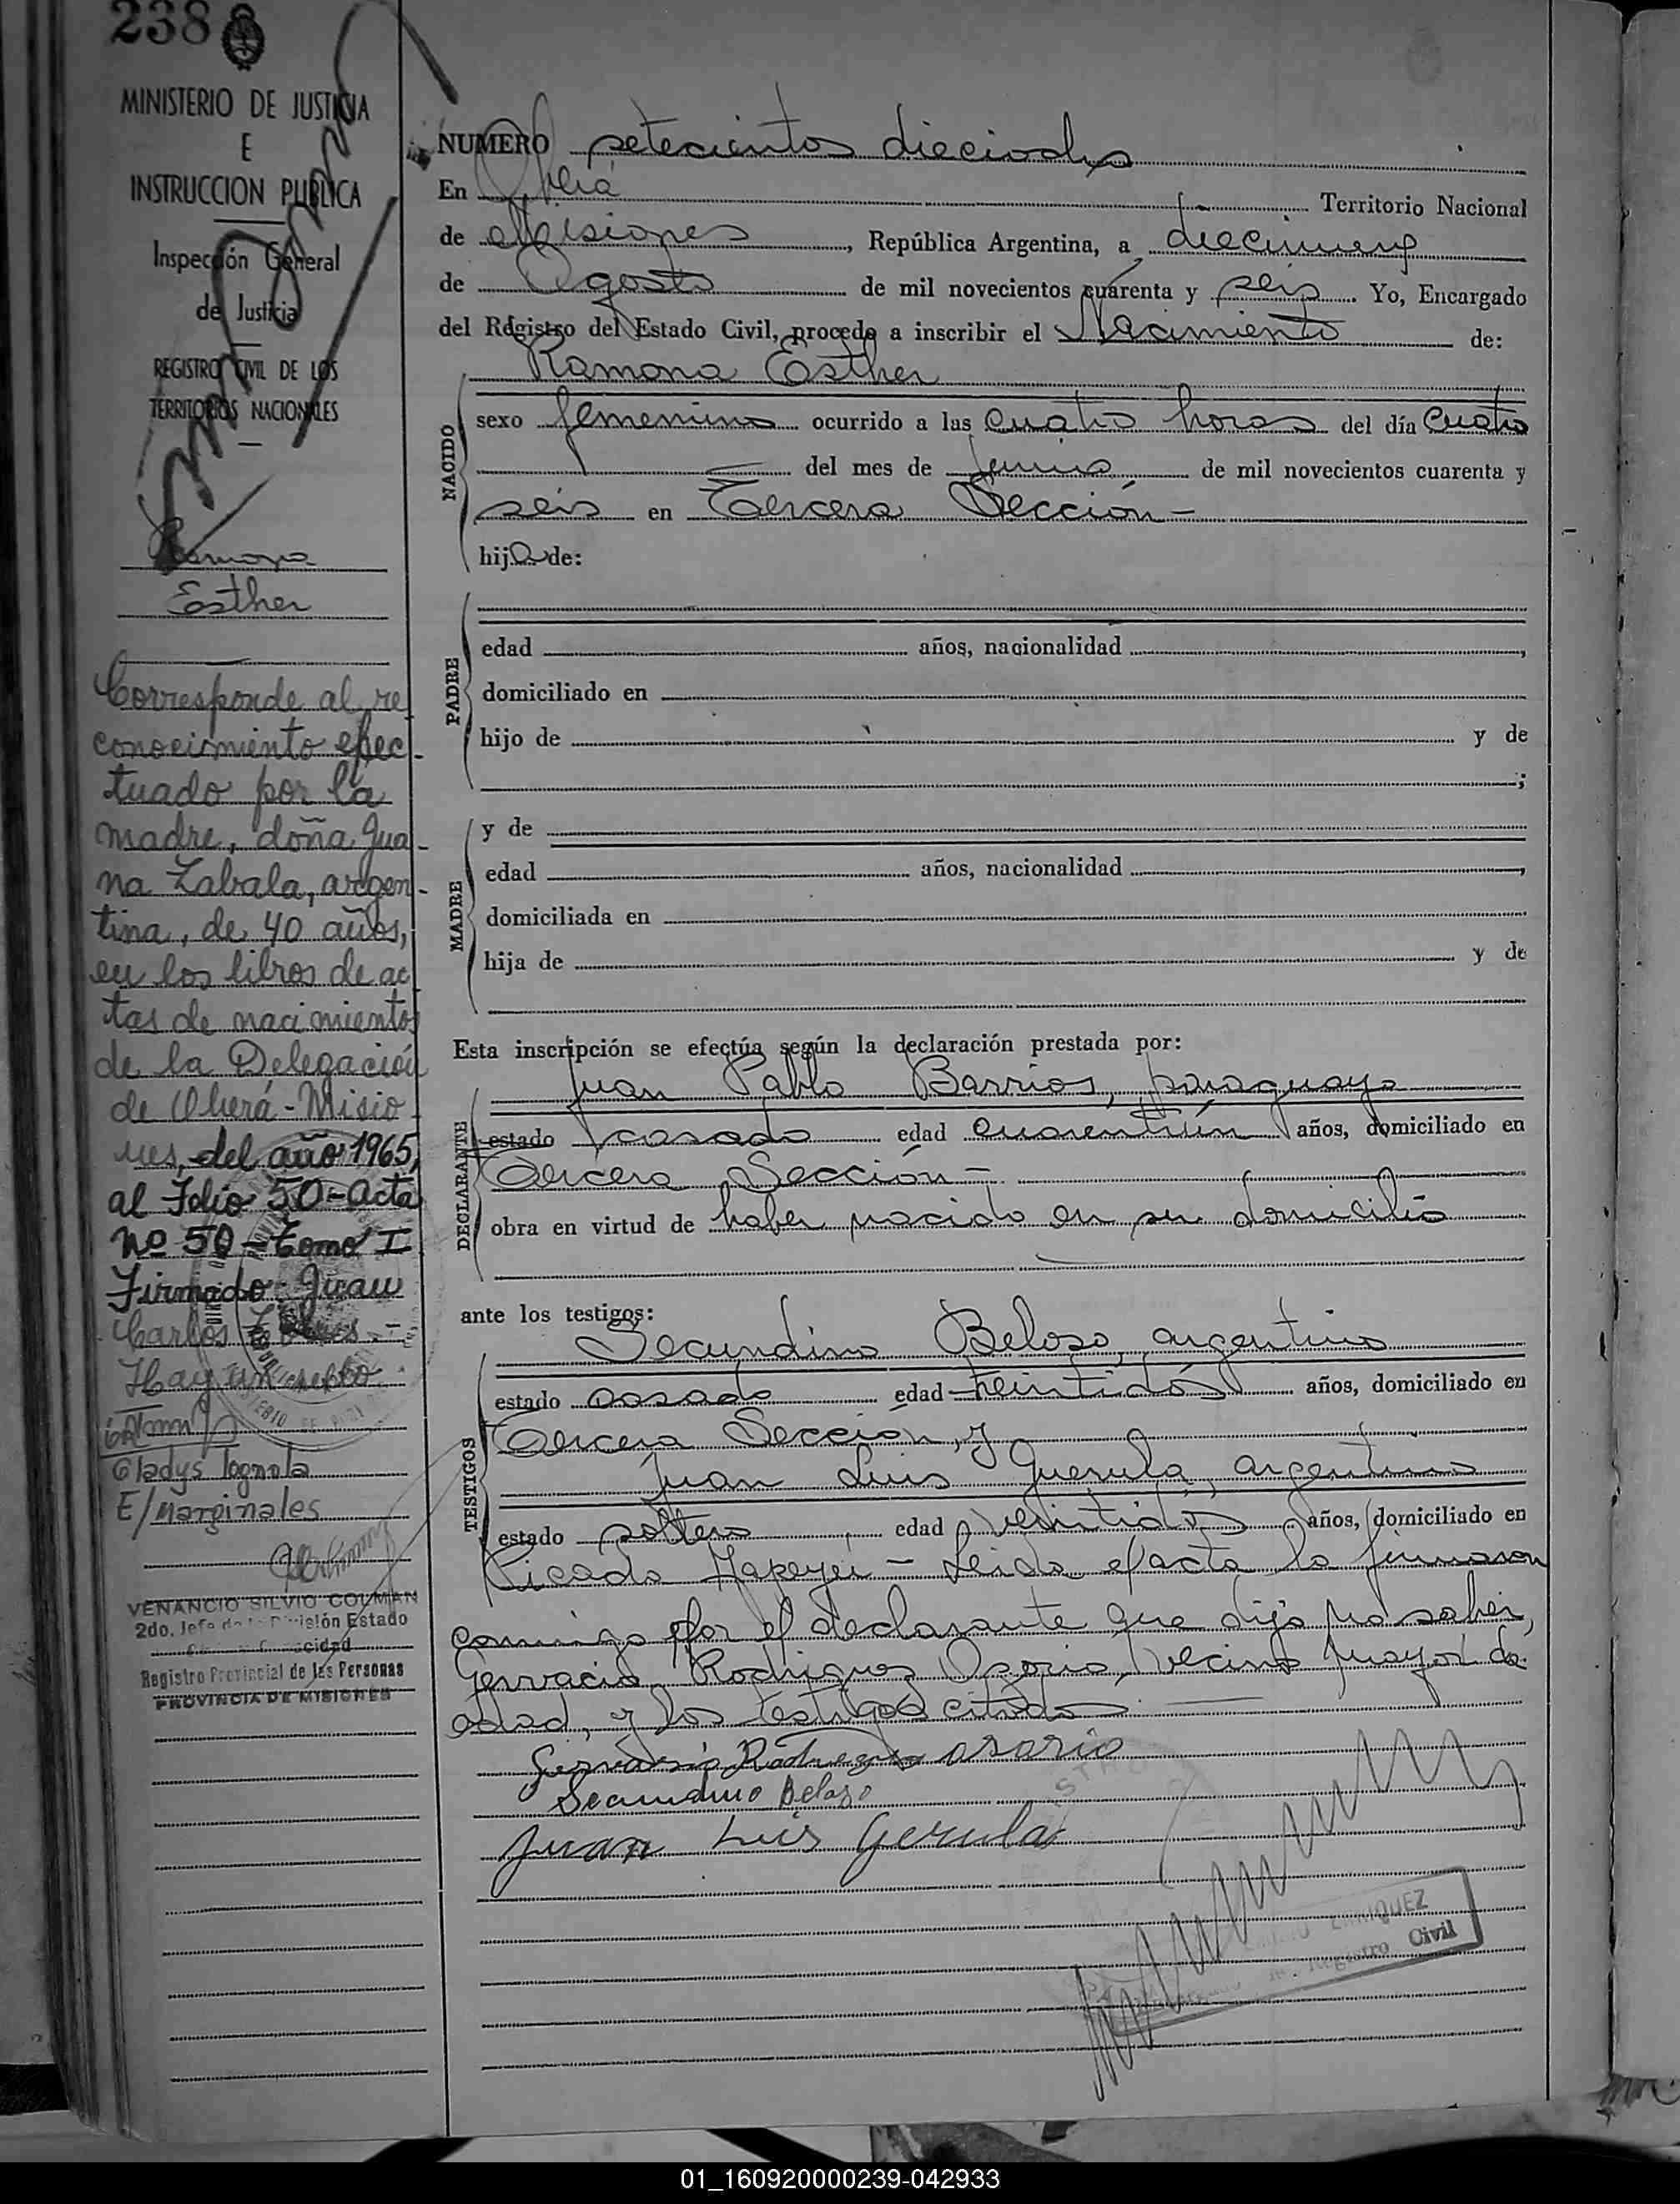 238
MINISTERIO DE JUSTICIA
E
INSTRUCCION PUBLICA
Inspección General
de Justicia
REGISTRO CIVIL DE LOS
TERRITORIOS NACIONALES
Ramona
Esther
Corresponde al re
conocimiento efec-
tuado por la
madre, doña Jua-
na Zabala, argen-
tina, de 40 años,
en los libros de ac
tas de nacimientos
de la Delegación
de Oberá - Misio
nes, del año 1965,
al Folio 50 - Acta
Nº 50 - Tomo I
Firmado: Juan
Carlos
Hay un sello.
Gladys Tognola
E/Marginales
VENANCIO SILVIO COLMAN
2do. Jefe de la División Estado
Registro Provincial de las Personas
PROVINCIA DE MISIONES
NUMERO setecientos dieciocho
En Oberá Territorio Nacional
de Misiones, República Argentina, a diecinueve
de Agosto de mil novecientos cuarenta y seis. Yo, Encargado
del Registro del Estado Civil, procedo a inscribir el Nacimiento de:
Ramona Esther
NACIDO
sexo femenino ocurrido a las cuatro horas del día cuatro
del mes de junio de mil novecientos cuarenta y
seis en Tercera Sección -
hija de:
PADRE
edad años, nacionalidad ,
domiciliado en
hijo de y de
;
MADRE
y de
edad años, nacionalidad ,
domiciliada en
hija de y de
Esta inscripción se efectúa según la declaración prestada por:
DECLARANTE
Juan Pablo Barrios, paraguayo
estado casado edad cuarentiún años, domiciliado en
Tercera Sección -
obra en virtud de haber nacido en su domicilio
ante los testigos:
TESTIGOS
Secundino Beloso, argentino
estado casado edad veintidós años, domiciliado en
Tercera Sección, y
Juan Luis Querula, argentino
estado soltero edad veintidós años, domiciliado en
Picada Yapeyú - Leida el acta la firmaron
conmigo por el declarante que dijo no saber,
Gervacio Rodriguez Osorio, vecino mayor de
edad, y los testigos citados
Gervasio Rodriguez osorio
Secundino Belozo
Juan Luis Gerula
ENRIQUEZ
Registro Civil
01_160920000239-042933